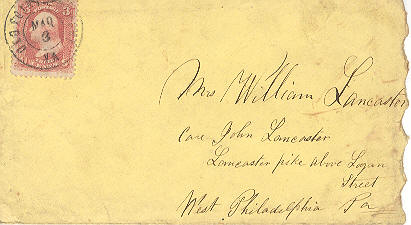 MAR
3
VA
Mrs William Lancaster
Care John Lancaster
Lancaster pike above Logan
Street
West Philadelphia Pa